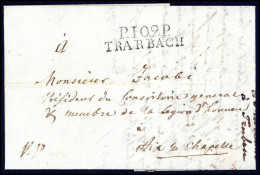 P.109.P
TRARBACH
à
Monsieur Jacobi
Président du Consistoire general
& membre de la Legion d'honneur
à
Aix la Chapelle